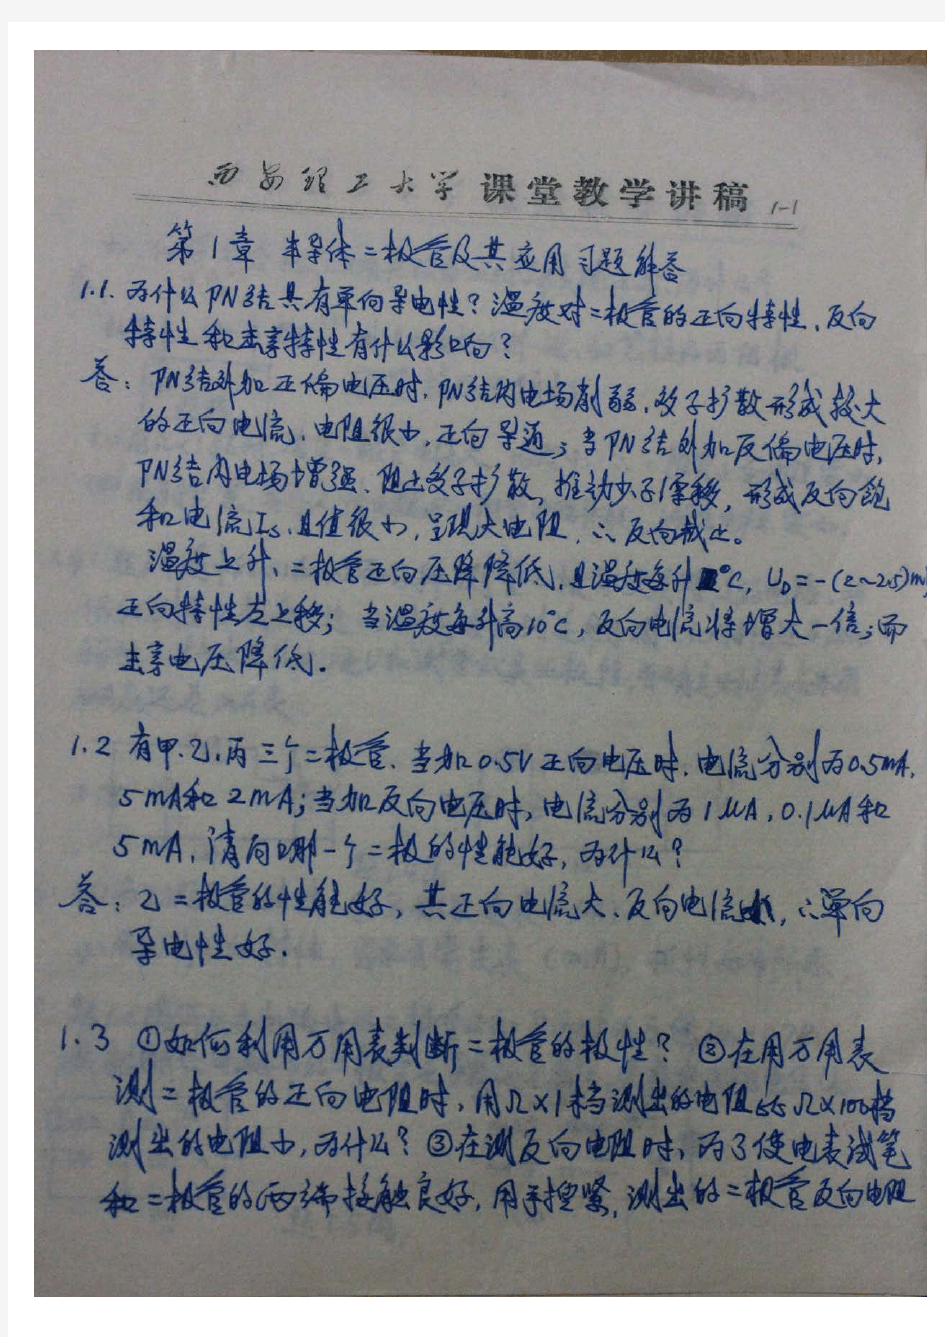 西安理工大学 课堂教学讲稿 1-1
第1章 半导体二极管及其应用 习题解答
1.1. 为什么PN结具有单向导电性?温度对二极管的正向特性、反向
特性和击穿特性有什么影响?
答:PN结外加正偏电压时,PN结内电场削弱,多子扩散形成较大
的正向电流,电阻很小,正向导通;当PN结外加反偏电压时,
PN结内电场增强、阻止多子扩散,推动少子漂移,形成反向饱
和电流Is,且值很小,呈现大电阻,∴反向截止。
温度上升,二极管正向压降降低,且温度每升 °C,UD=-(2~2.5)m
正向特性左上移;当温度每升高10°C,反向电流将增大一倍;而
击穿电压降低.
1.2 有甲.乙.丙三个二极管、当加0.5V正向电压时,电流分别为0.5mA,
5mA和2mA;当加反向电压时,电流分别为1μA,0.1μA和
5mA,请问哪一个二极的性能好,为什么?
答:乙二极管的性能好,其正向电流大、反向电流小,∴单向
导电性好.
1.3 ①如何利用万用表判断二极管的极性?②在用万用表
测二极管的正向电阻时,用Ω×1档测出的电阻比Ω×100档
测出的电阻小,为什么?③在测反向电阻时,为了使电表试笔
和二极管的两端接触良好,用手捏紧,测出的二极管反向电阻